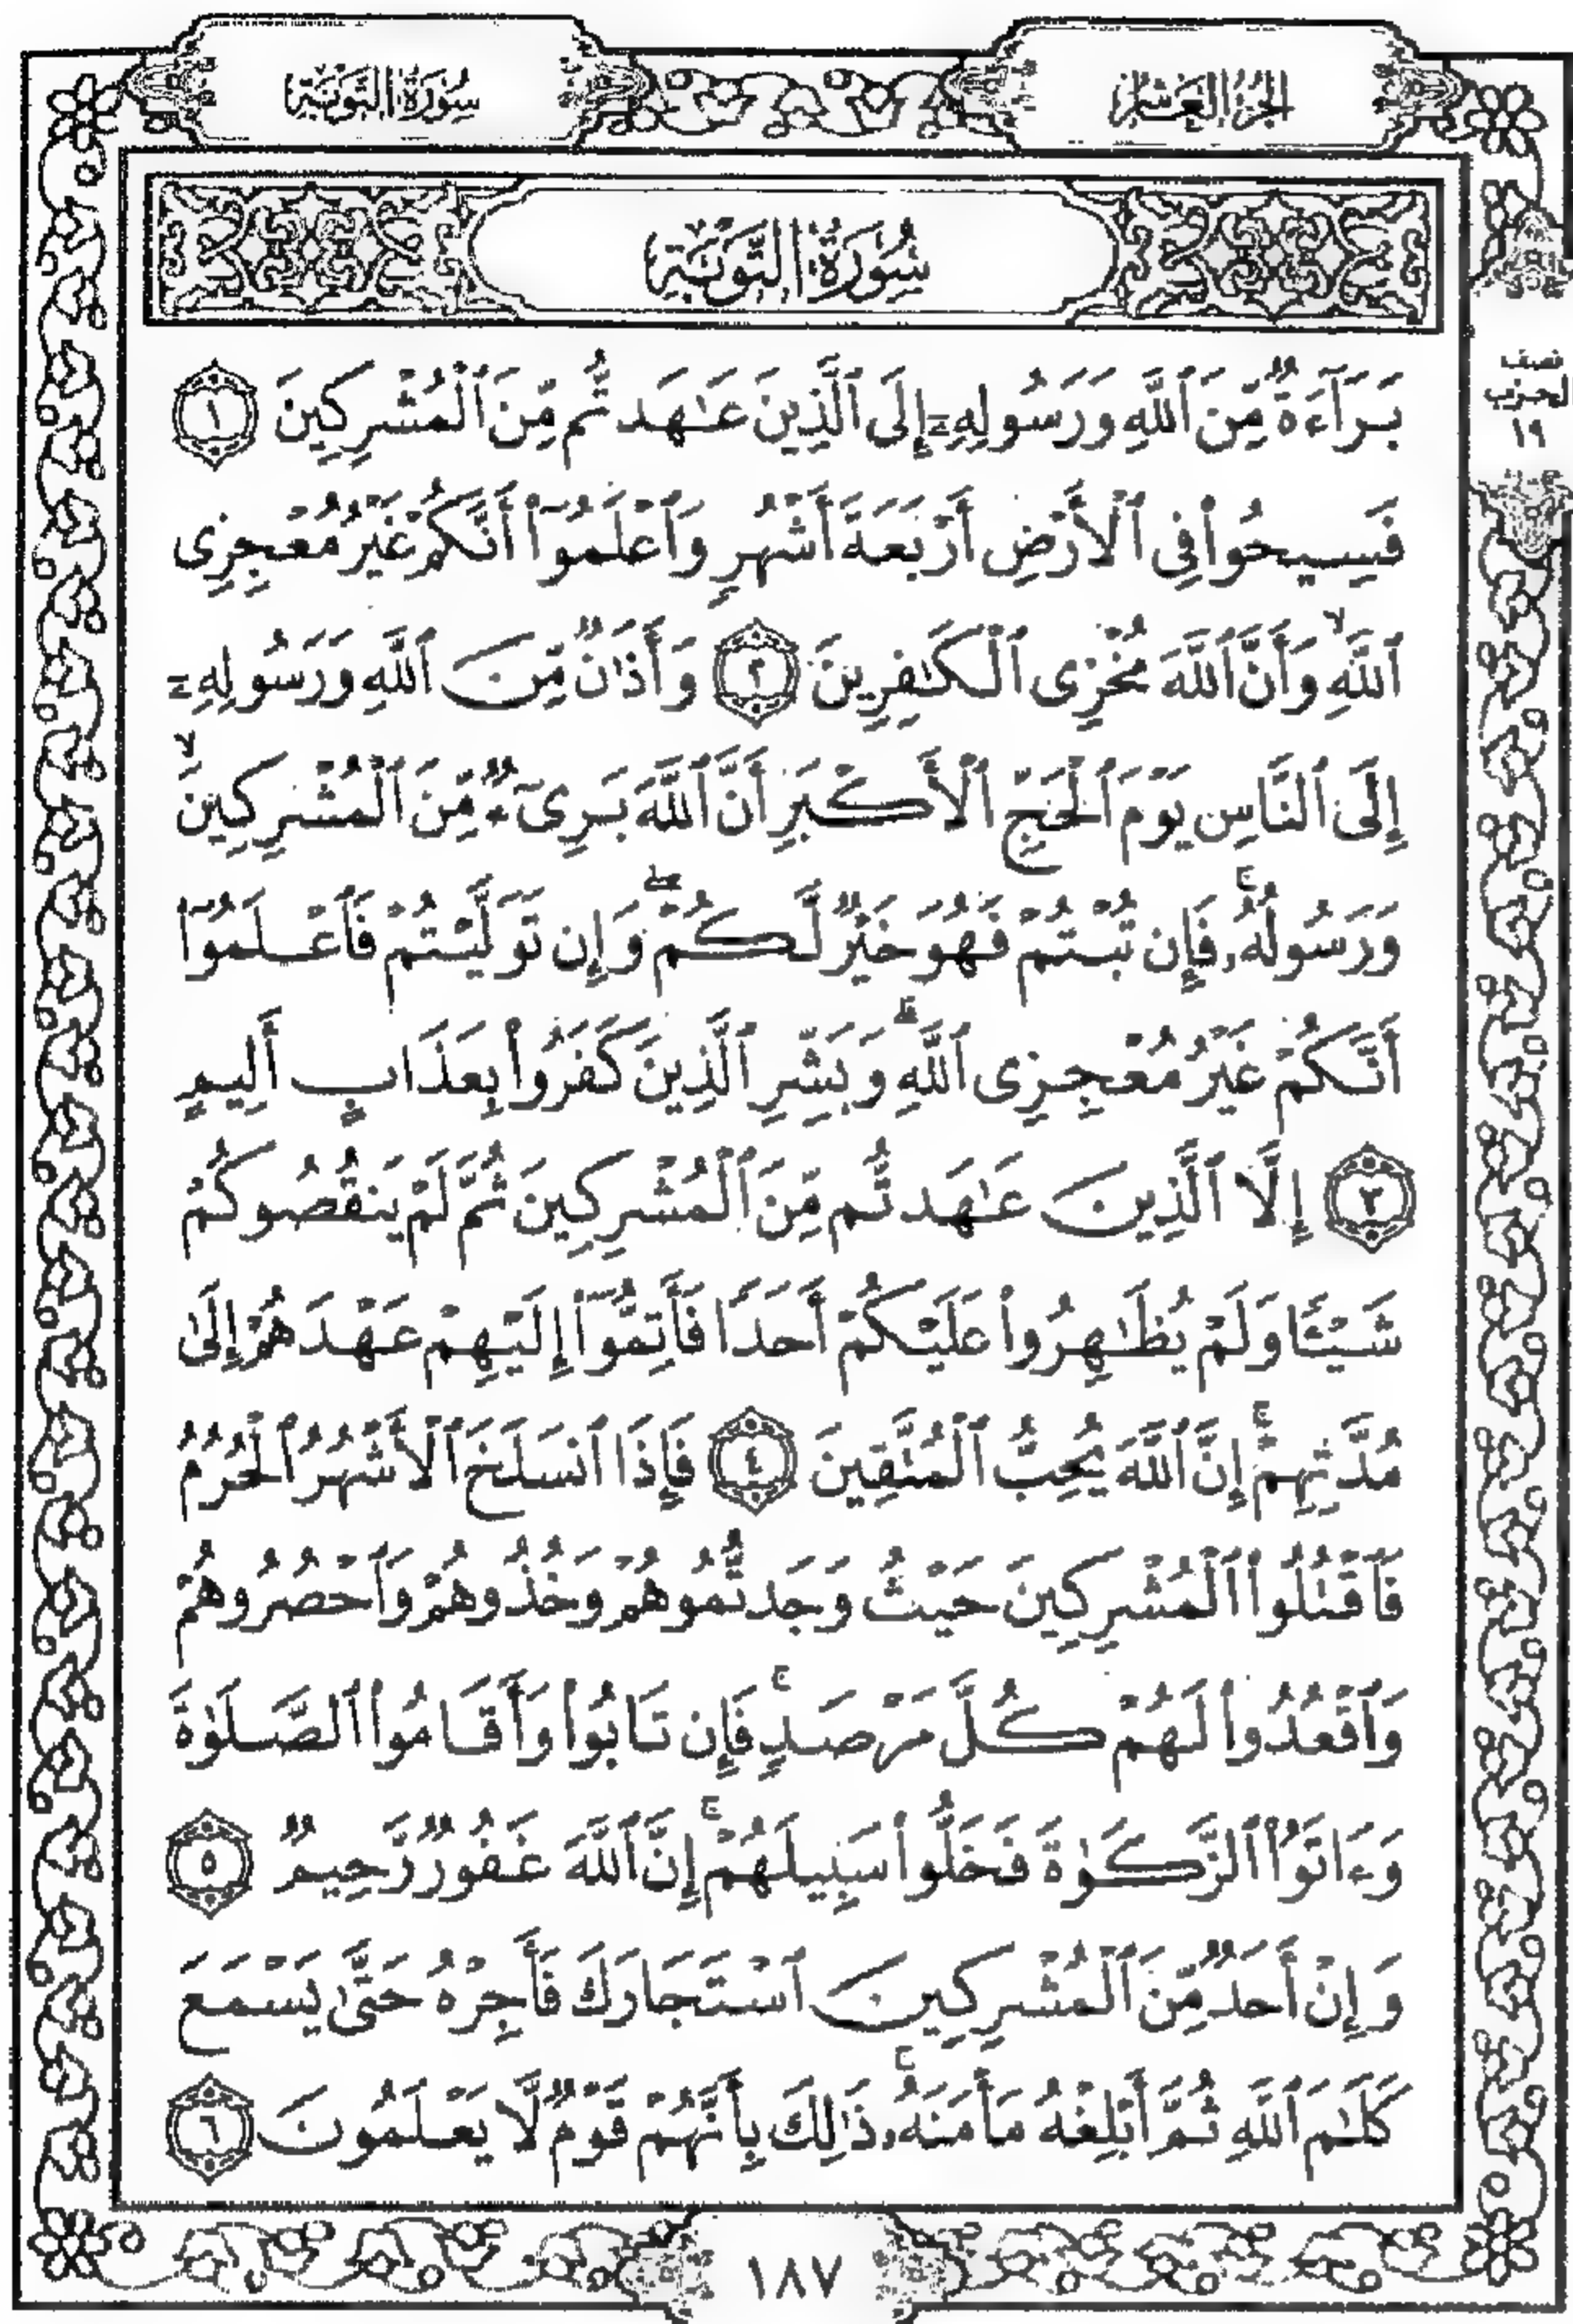 الجزء العاشر
سورة التوبة
سُورَةُ التَّوْبَةِ
بَرَآءَةٌ مِّنَ ٱللَّهِ وَرَسُولِهِۦٓ إِلَى ٱلَّذِينَ عَٰهَدتُّم مِّنَ ٱلْمُشْرِكِينَ ١
نصف الحزب ١٩
فَسِيحُوا۟ فِى ٱلْأَرْضِ أَرْبَعَةَ أَشْهُرٍ وَٱعْلَمُوٓا۟ أَنَّكُمْ غَيْرُ مُعْجِزِى
ٱللَّهِ ۙ وَأَنَّ ٱللَّهَ مُخْزِى ٱلْكَٰفِرِينَ ٢ وَأَذَٰنٌ مِّنَ ٱللَّهِ وَرَسُولِهِۦٓ
إِلَى ٱلنَّاسِ يَوْمَ ٱلْحَجِّ ٱلْأَكْبَرِ أَنَّ ٱللَّهَ بَرِىٓءٌ مِّنَ ٱلْمُشْرِكِينَ ۙ
وَرَسُولُهُۥ ۚ فَإِن تُبْتُمْ فَهُوَ خَيْرٌ لَّكُمْ ۖ وَإِن تَوَلَّيْتُمْ فَٱعْلَمُوٓا۟
أَنَّكُمْ غَيْرُ مُعْجِزِى ٱللَّهِ ۗ وَبَشِّرِ ٱلَّذِينَ كَفَرُوا۟ بِعَذَابٍ أَلِيمٍ
٣ إِلَّا ٱلَّذِينَ عَٰهَدتُّم مِّنَ ٱلْمُشْرِكِينَ ثُمَّ لَمْ يَنقُصُوكُمْ
شَيْـًٔا وَلَمْ يُظَٰهِرُوا۟ عَلَيْكُمْ أَحَدًا فَأَتِمُّوٓا۟ إِلَيْهِمْ عَهْدَهُمْ إِلَىٰ
مُدَّتِهِمْ ۚ إِنَّ ٱللَّهَ يُحِبُّ ٱلْمُتَّقِينَ ٤ فَإِذَا ٱنسَلَخَ ٱلْأَشْهُرُ ٱلْحُرُمُ
فَٱقْتُلُوا۟ ٱلْمُشْرِكِينَ حَيْثُ وَجَدتُّمُوهُمْ وَخُذُوهُمْ وَٱحْصُرُوهُمْ
وَٱقْعُدُوا۟ لَهُمْ كُلَّ مَرْصَدٍ ۚ فَإِن تَابُوا۟ وَأَقَامُوا۟ ٱلصَّلَوٰةَ
وَءَاتَوُا۟ ٱلزَّكَوٰةَ فَخَلُّوا۟ سَبِيلَهُمْ ۚ إِنَّ ٱللَّهَ غَفُورٌ رَّحِيمٌ ٥
وَإِنْ أَحَدٌ مِّنَ ٱلْمُشْرِكِينَ ٱسْتَجَارَكَ فَأَجِرْهُ حَتَّىٰ يَسْمَعَ
كَلَٰمَ ٱللَّهِ ثُمَّ أَبْلِغْهُ مَأْمَنَهُۥ ۚ ذَٰلِكَ بِأَنَّهُمْ قَوْمٌ لَّا يَعْلَمُونَ ٦
١٨٧